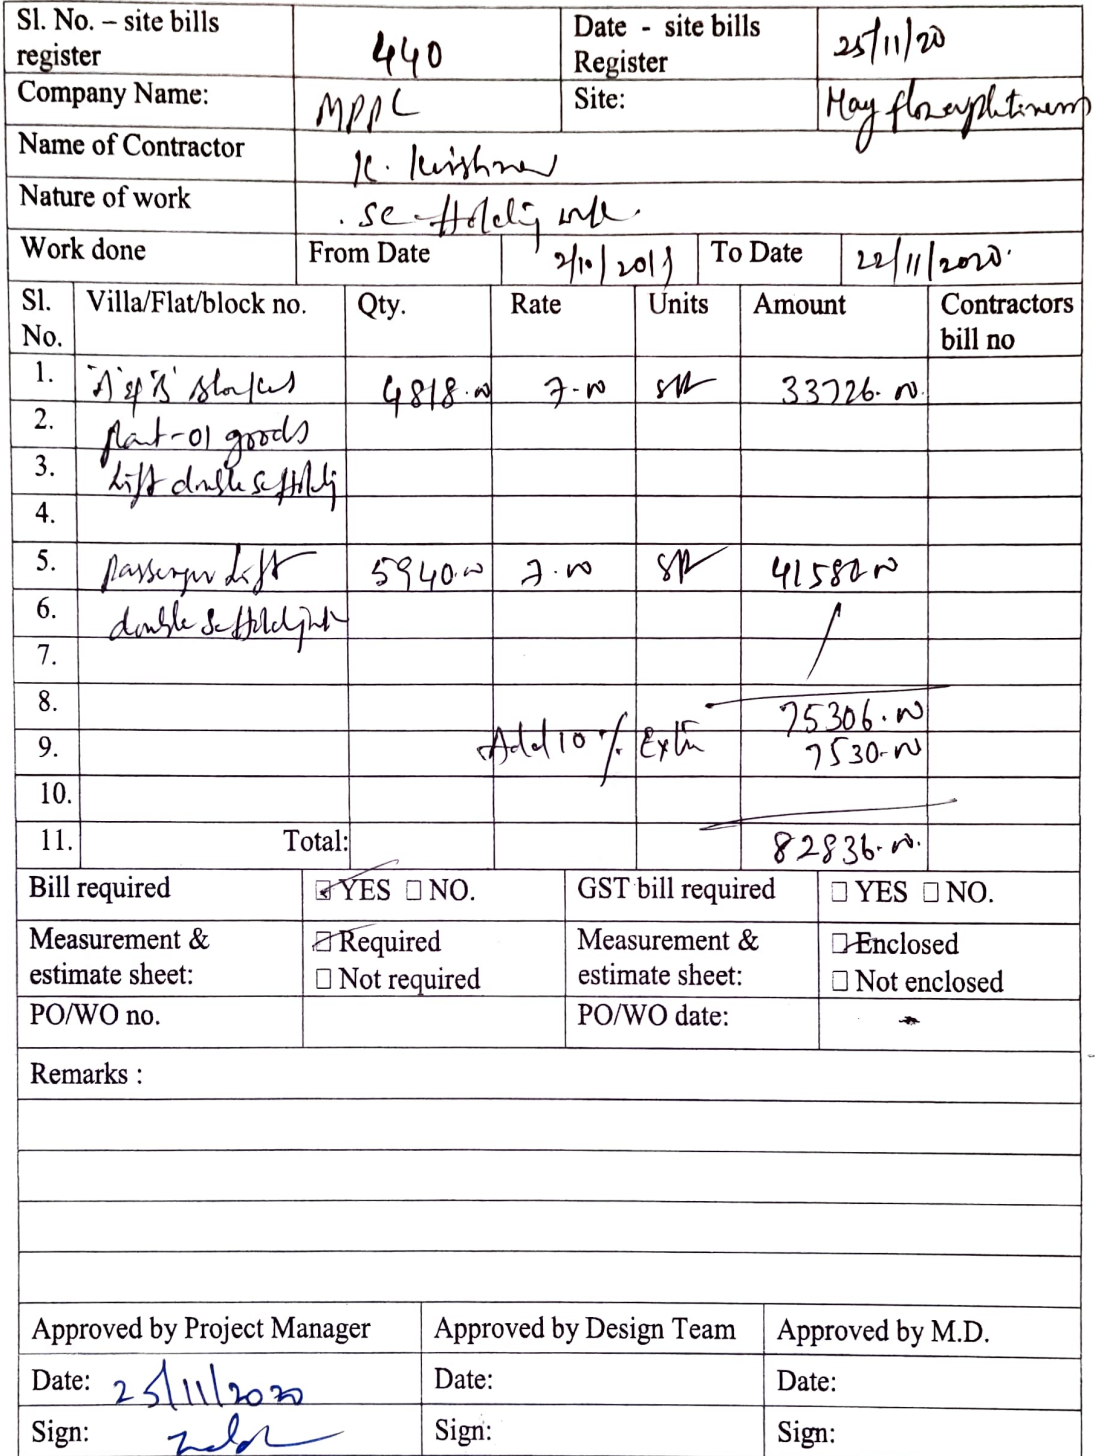 Sl. No. – site bills register 440 Date - site bills Register 25/11/20
Company Name: MPPL Site: May flower platinum
Name of Contractor K. Krishna
Nature of work Scaffolding work
Work done From Date 2/10/2019 To Date 22/11/2020
Sl. No. Villa/Flat/block no. Qty. Rate Units Amount Contractors bill no
1. 'A' & 'B' 4818.00 7.00 sft 33726.00
2. part-01 goods
3. Lift double scaffolding
4.
5. passenger Lift 5940.00 7.00 sft 41580.00
6. double scaffolding
7.
8. 75306.00
9. Add 10% Extra 7530.00
10.
11. Total: 82836.00
Bill required ☑ YES ☐ NO. GST bill required ☐ YES ☐ NO.
Measurement & estimate sheet: ☑ Required ☐ Not required Measurement & estimate sheet: ☑ Enclosed ☐ Not enclosed
PO/WO no. PO/WO date:
Remarks :
Approved by Project Manager Approved by Design Team Approved by M.D.
Date: 25/11/2020 Date: Date:
Sign: Sign: Sign: